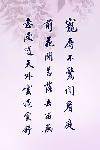 寵辱不驚閒看庭
前花開花落去留無
意漫随天外雲卷雲舒